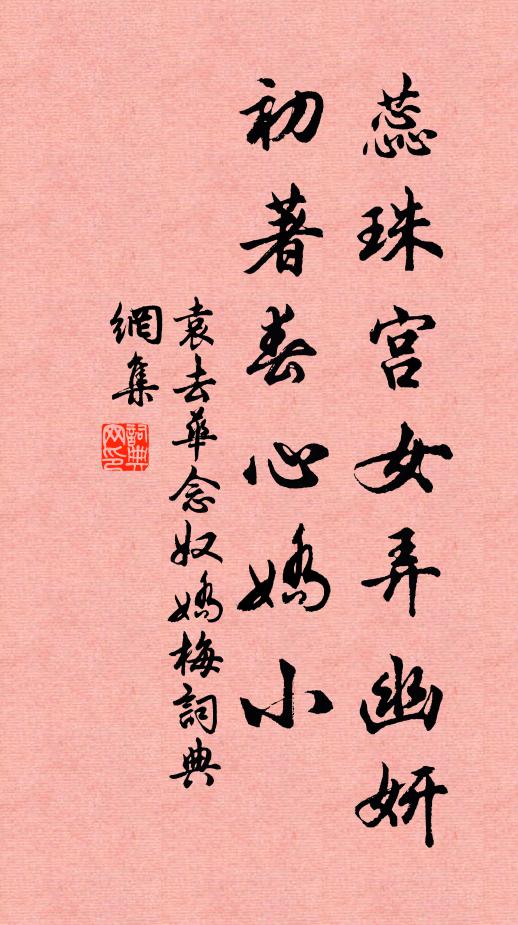 蕊珠宫女弄幽妍
初著春心嬌小
袁去華念奴嬌梅詞典
網集
詞典
网印